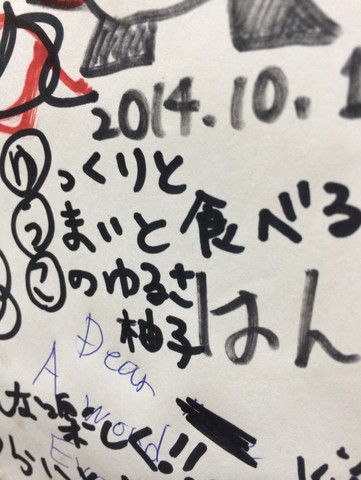 2014.10.1
ゆっくりと
うまいと食べる
このゆるさ
柚子
はん
Dear
A word
な楽しく!!